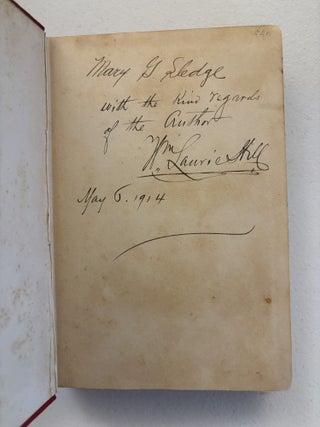 Mary G Sledge
with the kind regards
of the Author
Wm Laurie Hill
May 6. 1914